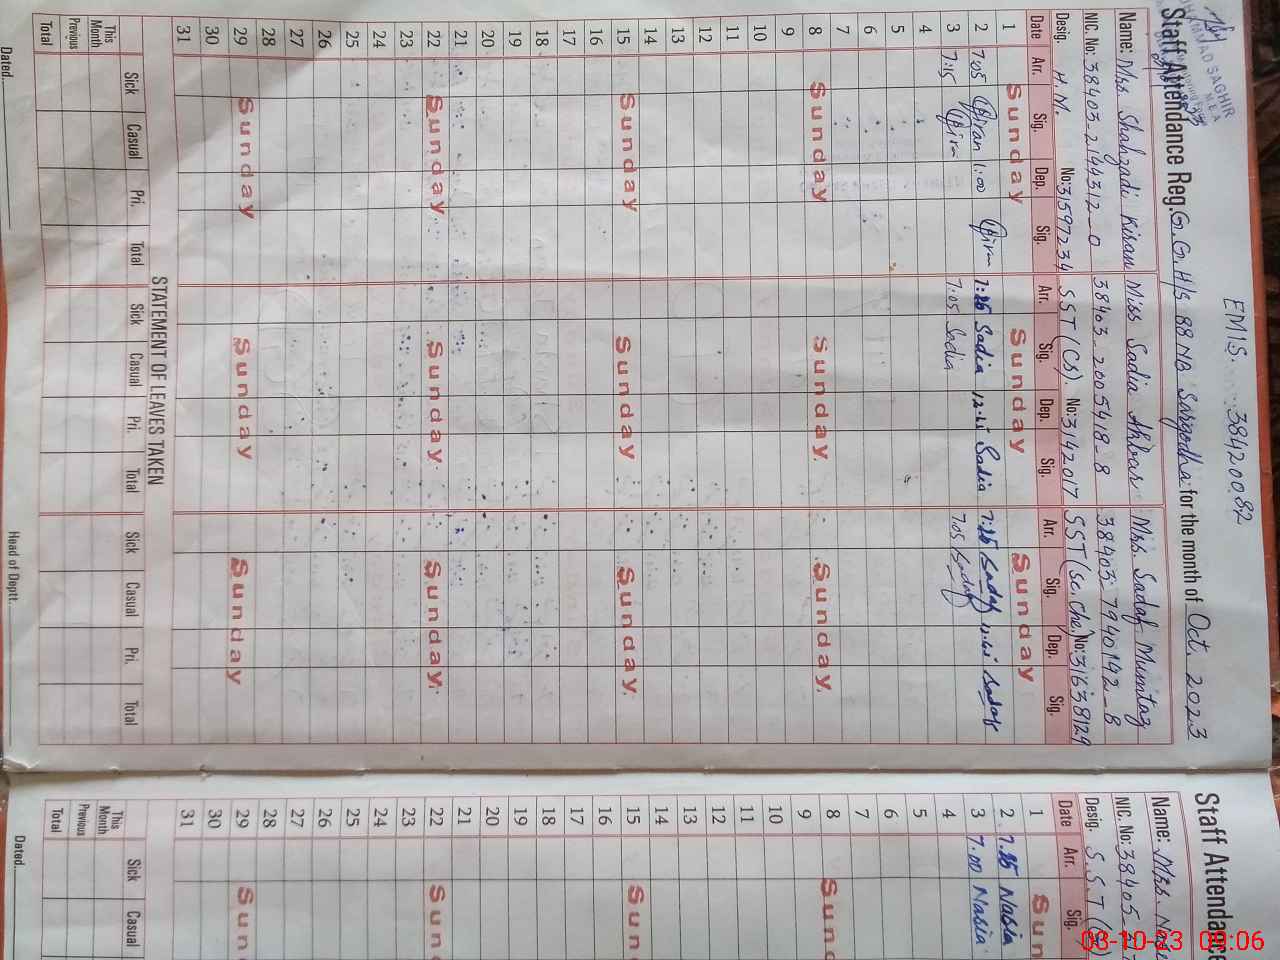 EMIS. 38420082
Staff Attendance Reg. G.G.H/S 88 NB Sargodha for the month of Oct 2023
Name: Mrs. Shahzadi Kiran Miss Sadia Akbar Mrs. Sadaf Mumtaz
NIC. No: 38403_2144312_0 38403_2005418_8 38403_7940192_8
Desig. H.M. No: 31597234 SST (CS). No: 3142017 SST (Sc. Che.) No: 31638129
Date Arr. Sig. Dep. Sig. Arr. Sig. Dep. Sig. Arr. Sig. Dep. Sig.
1 Sunday Sunday Sunday
2 7:05 Kiran 1:00 Kiran Sadia 12:45 Sadia Sadaf 12:45 Sadaf
3 7:15 Kiran 7:05 Sadia 7:05 Sadaf
4
5
6
7
8 Sunday Sunday. Sunday.
9
10
11
12
13
14
15 Sunday Sunday Sunday.
16
17
18
19
20
21
22 Sunday Sunday. Sunday.
23
24
25
26
27
28
29 Sunday Sunday Sunday
30
31
STATEMENT OF LEAVES TAKEN
Sick Casual Pri. Total Sick Casual Pri. Total Sick Casual Pri. Total
This Month
Previous
Total
Dated. Head of Deptt.
Staff Attendance
Name: Mrs.
NIC. No: 38405
Desig. S.S.T
Date Arr. Sig.
1 Sun
2 Nasia
3 7:00 Nasia
4
5
6
7
8 Sun
9
10
11
12
13
14
15 Sun
16
17
18
19
20
21
22 Sun
23
24
25
26
27
28
29 Sun
30
31
Sick Casual
This Month
Previous
Total
Dated.
03-10-23 09:06